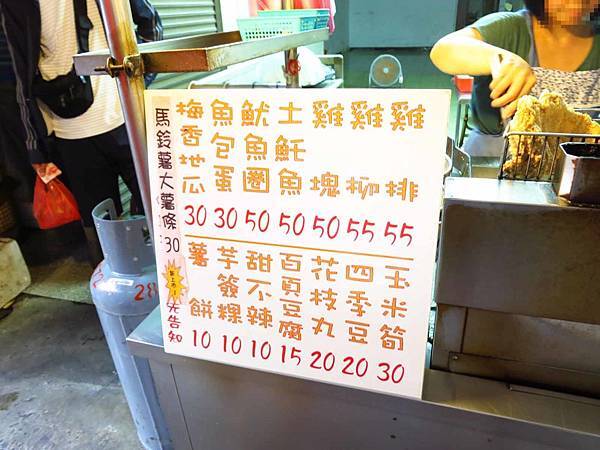 雞排 55
雞柳 55
雞塊 50
土魠魚 50
魷魚圈 50
魚包蛋 30
梅香地瓜 30
玉米筍 30
四季豆 20
花枝丸 20
百頁豆腐 15
甜不辣 10
芋簽粿 10
薯餅 10
馬鈴薯大薯條:30
先告知